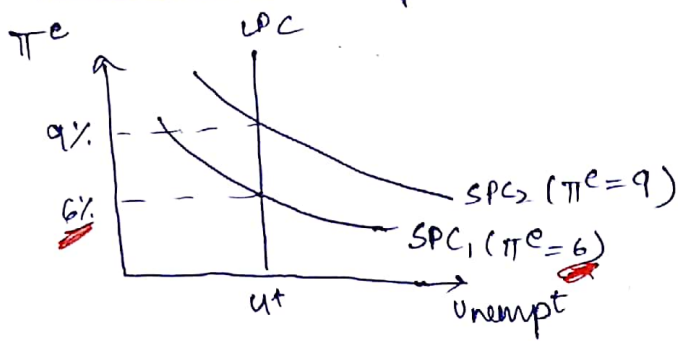 πᵉ
LPC
9%
6%
SPC₂ (πᵉ=9)
SPC₁ (πᵉ=6)
u*
Unempt